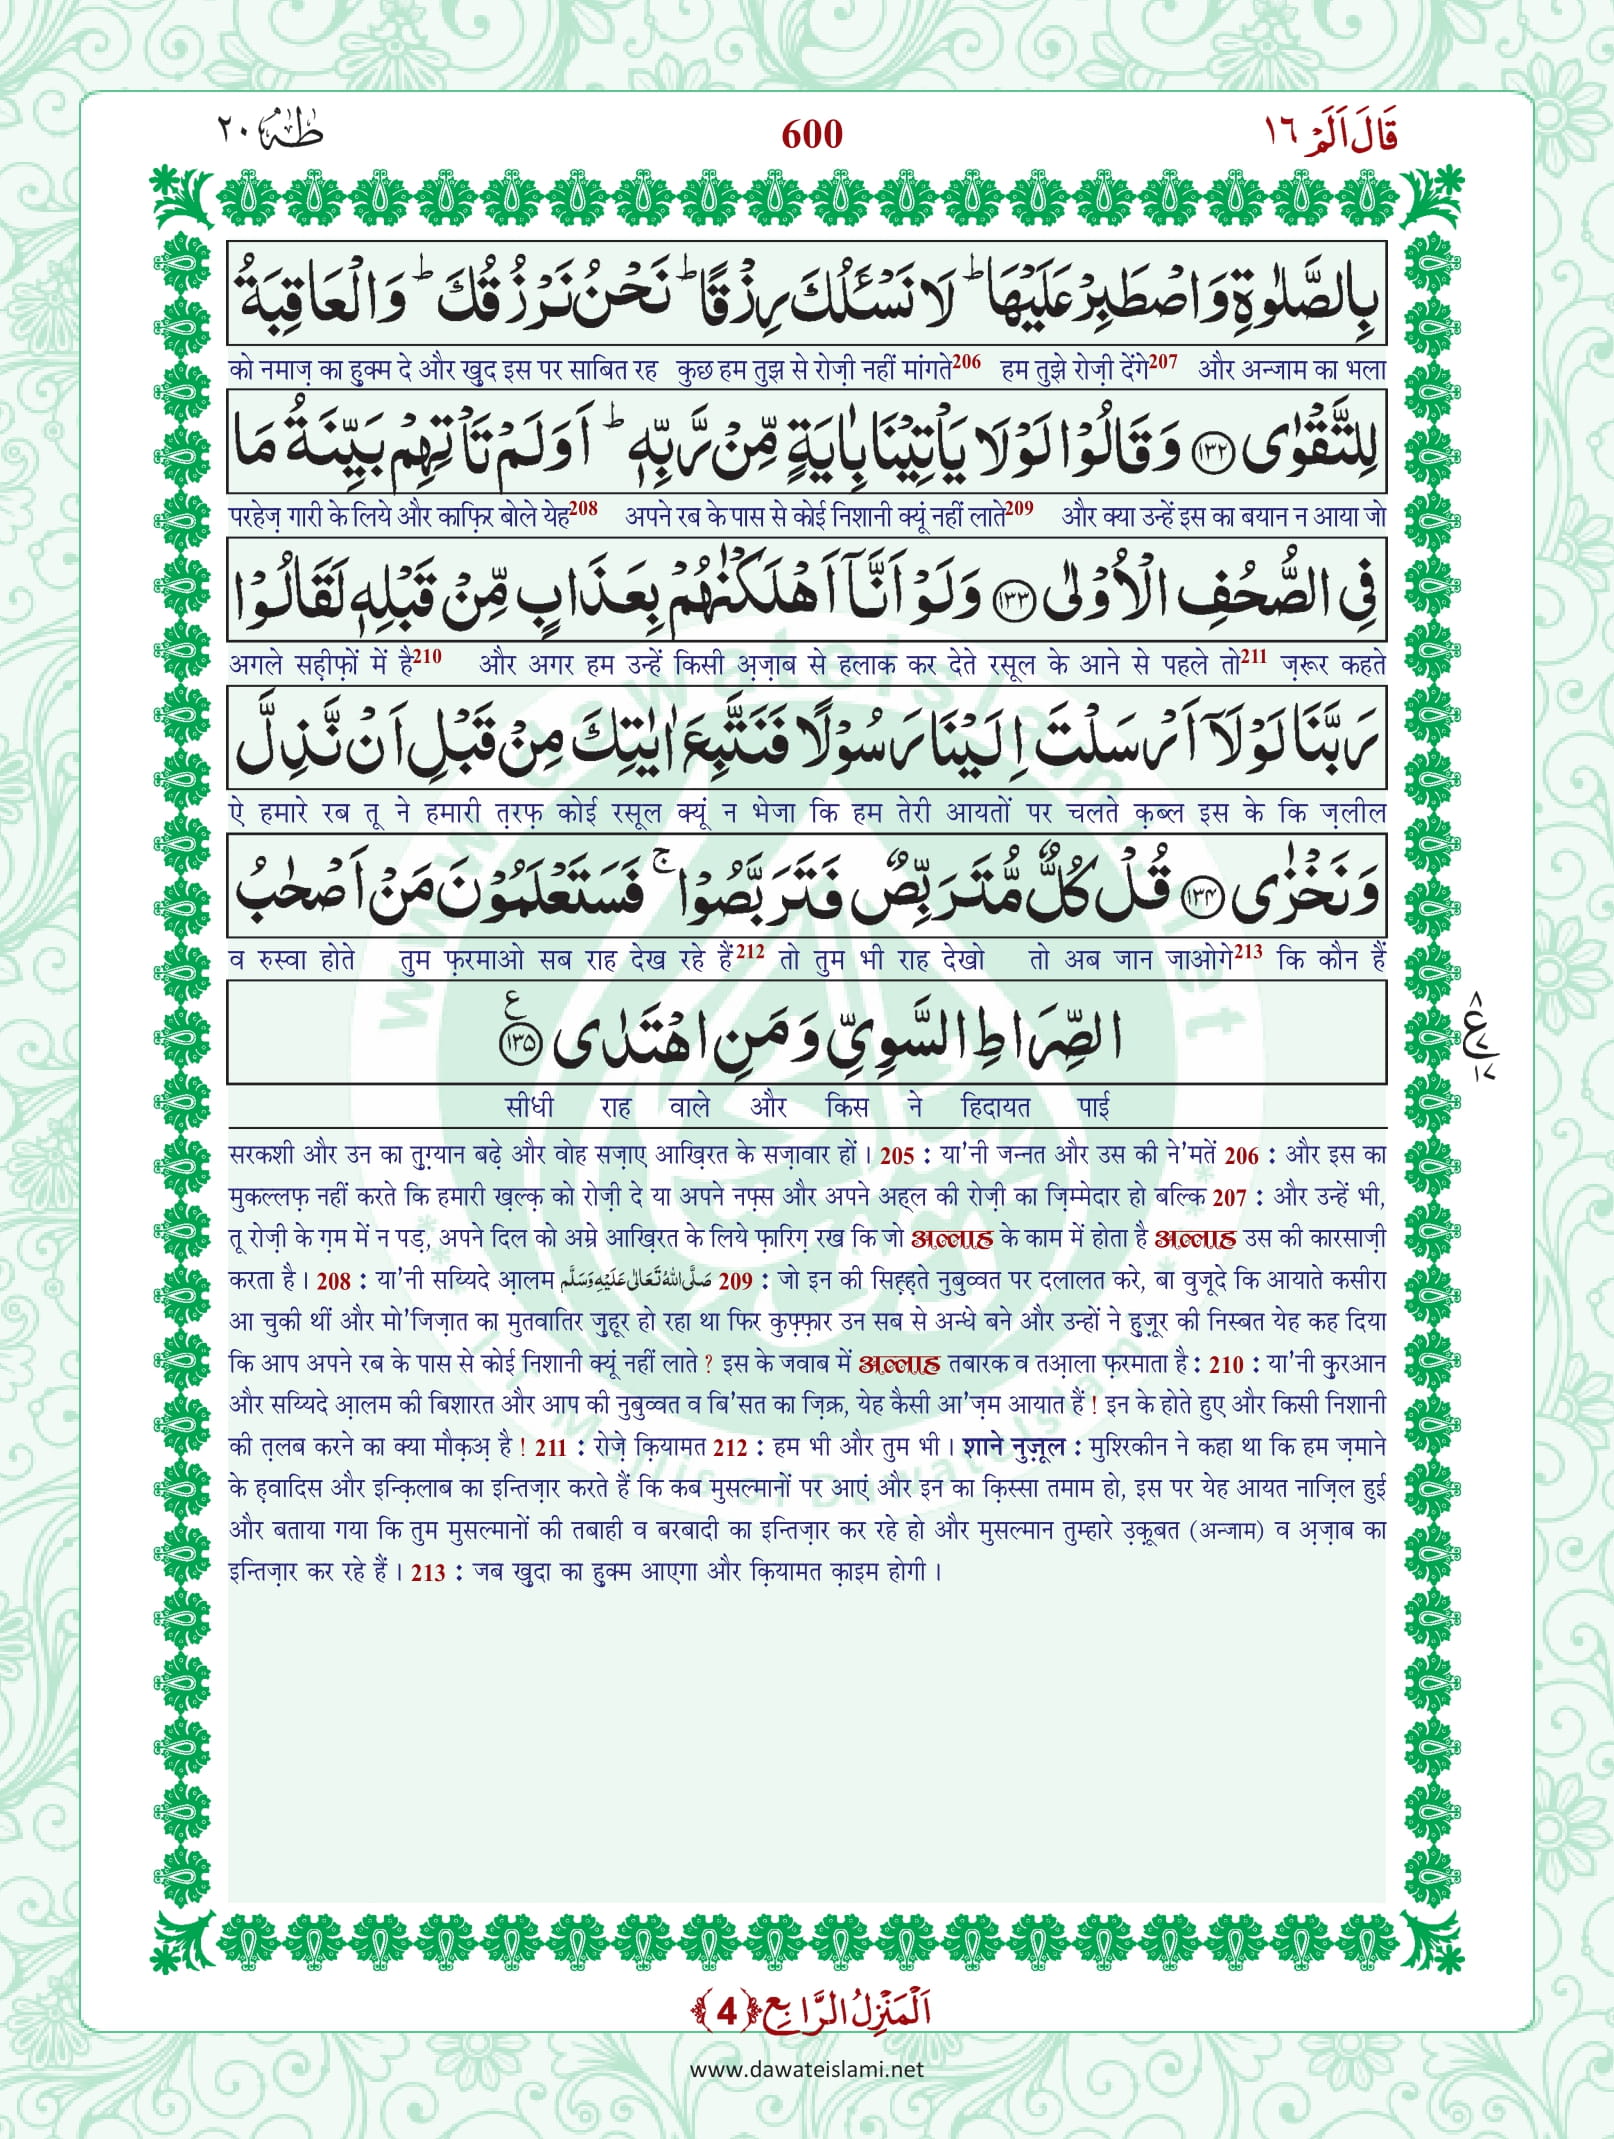 طٰهٰ ٢٠
600
قَالَ اَلَمْ ١٦
بِالصَّلٰوةِ وَاصْطَبِرْ عَلَیْهَاؕ لَا نَسْــٴَـلُكَ رِزْقًاؕ نَحْنُ نَرْزُقُكَؕ وَالْعَاقِبَةُ
को नमाज़ का हुक्म दे और खुद इस पर साबित रह कुछ हम तुझ से रोज़ी नहीं मांगते206 हम तुझे रोज़ी देंगे207 और अन्जाम का भला
لِلتَّقْوٰى ﴿۱۳۲﴾ وَقَالُوْا لَوْلَا یَاْتِیْنَا بِاٰیَةٍ مِّنْ رَّبِّهٖؕ اَوَلَمْ تَاْتِهِمْ بَیِّنَةُ مَا
परहेज़ गारी के लिये और काफ़िर बोले येह208 अपने रब के पास से कोई निशानी क्यूं नहीं लाते209 और क्या उन्हें इस का बयान न आया जो
فِی الصُّحُفِ الْاُوْلٰى ﴿۱۳۳﴾ وَلَوْ اَنَّاۤ اَهْلَكْنٰهُمْ بِعَذَابٍ مِّنْ قَبْلِهٖ لَقَالُوْا
अगले सह़ीफ़ों में है210 और अगर हम उन्हें किसी अ़ज़ाब से हलाक कर देते रसूल के आने से पहले तो211 ज़रूर कहते
رَبَّنَا لَوْلَاۤ اَرْسَلْتَ اِلَیْنَا رَسُوْلًا فَنَتَّبِعَ اٰیٰتِكَ مِنْ قَبْلِ اَنْ نَّذِلَّ
ऐ हमारे रब तू ने हमारी त़रफ़ कोई रसूल क्यूं न भेजा कि हम तेरी आयतों पर चलते क़ब्ल इस के कि ज़लील
وَنَخْزٰى ﴿۱۳۴﴾ قُلْ كُلٌّ مُّتَرَبِّصٌ فَتَرَبَّصُوْاۚ فَسَتَعْلَمُوْنَ مَنْ اَصْحٰبُ
व रुस्वा होते तुम फ़रमाओ सब राह देख रहे हैं212 तो तुम भी राह देखो तो अब जान जाओगे213 कि कौन हैं
الصِّرَاطِ السَّوِیِّ وَمَنِ اهْتَدٰى ﴿۱۳۵﴾ ع
٨ ع ١٧
सीधी राह वाले और किस ने हिदायत पाई
सरकशी और उन का तुग़्यान बढ़े और वोह सज़ाए आख़िरत के सज़ावार हों । 205 : या'नी जन्नत और उस की ने'मतें 206 : और इस का
मुकल्लफ़ नहीं करते कि हमारी ख़ल्क़ को रोज़ी दे या अपने नफ़्स और अपने अह्ल की रोज़ी का ज़िम्मेदार हो बल्कि 207 : और उन्हें भी,
तू रोज़ी के ग़म में न पड़, अपने दिल को अम्रे आख़िरत के लिये फ़ारिग़ रख कि जो अल्लाह के काम में होता है अल्लाह उस की कारसाज़ी
करता है । 208 : या'नी सय्यिदे आ़लम صَلَّى اللهُ تَعَالٰى عَلَيْهِ وَسَلَّم 209 : जो इन की सिह़्ह़ते नुबुव्वत पर दलालत करे, बा वुजूदे कि आयाते कसीरा
आ चुकी थीं और मो'जिज़ात का मुतवातिर ज़ुहूर हो रहा था फिर कुफ़्फ़ार उन सब से अन्धे बने और उन्हों ने हुज़ूर की निस्बत येह कह दिया
कि आप अपने रब के पास से कोई निशानी क्यूं नहीं लाते ? इस के जवाब में अल्लाह तबारक व तआ़ला फ़रमाता है : 210 : या'नी क़ुरआन
और सय्यिदे आ़लम की बिशारत और आप की नुबुव्वत व बि'सत का ज़िक्र, येह कैसी आ'ज़म आयात हैं ! इन के होते हुए और किसी निशानी
की त़लब करने का क्या मौक़अ़ है ! 211 : रोज़े क़ियामत 212 : हम भी और तुम भी । शाने नुज़ूल : मुश्रिकीन ने कहा था कि हम ज़माने
के ह़वादिस और इन्क़िलाब का इन्तिज़ार करते हैं कि कब मुसल्मानों पर आएं और इन का क़िस्सा तमाम हो, इस पर येह आयत नाज़िल हुई
और बताया गया कि तुम मुसल्मानों की तबाही व बरबादी का इन्तिज़ार कर रहे हो और मुसल्मान तुम्हारे उ़क़ूबत (अन्जाम) व अ़ज़ाब का
इन्तिज़ार कर रहे हैं । 213 : जब ख़ुदा का हुक्म आएगा और क़ियामत क़ाइम होगी ।
اَلْمَنْزِلُ الرَّابِع ﴿4﴾
www.dawateislami.net